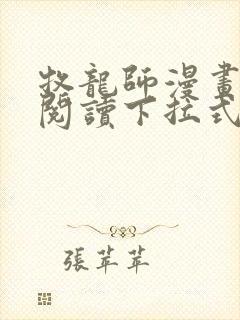 牧龍師漫畫
閱讀下拉式
張苹苹